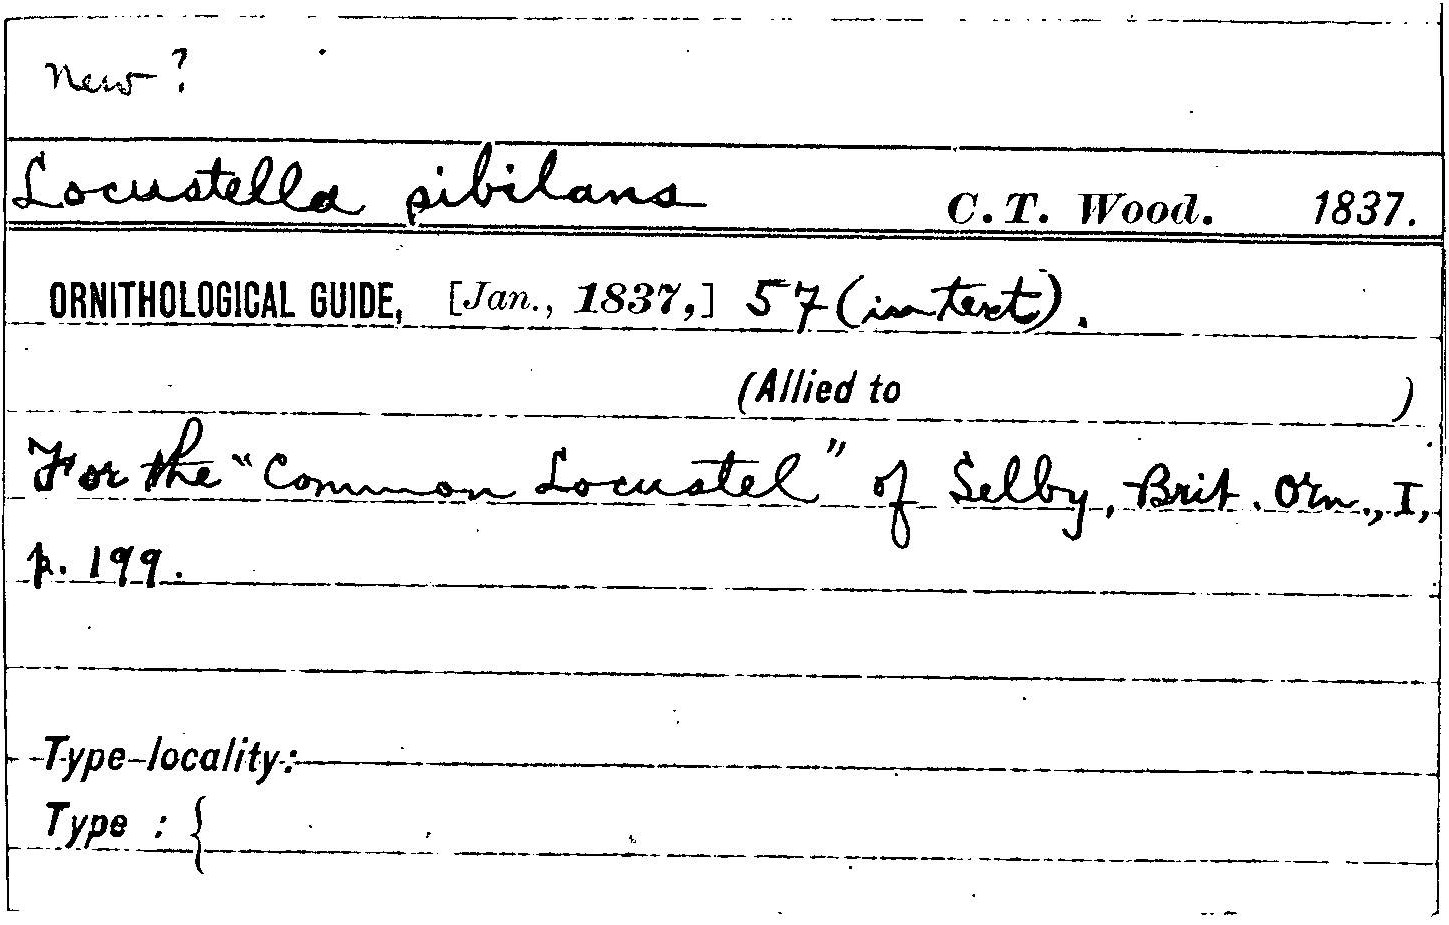 New?
Locustella sibilans C. T. Wood. 1837.
ORNITHOLOGICAL GUIDE, [Jan., 1837,] 57 (in text).
(Allied to )
For the "Common Locustel" of Selby, Brit. Orn., I,
p. 199.
Type-locality:
Type : {